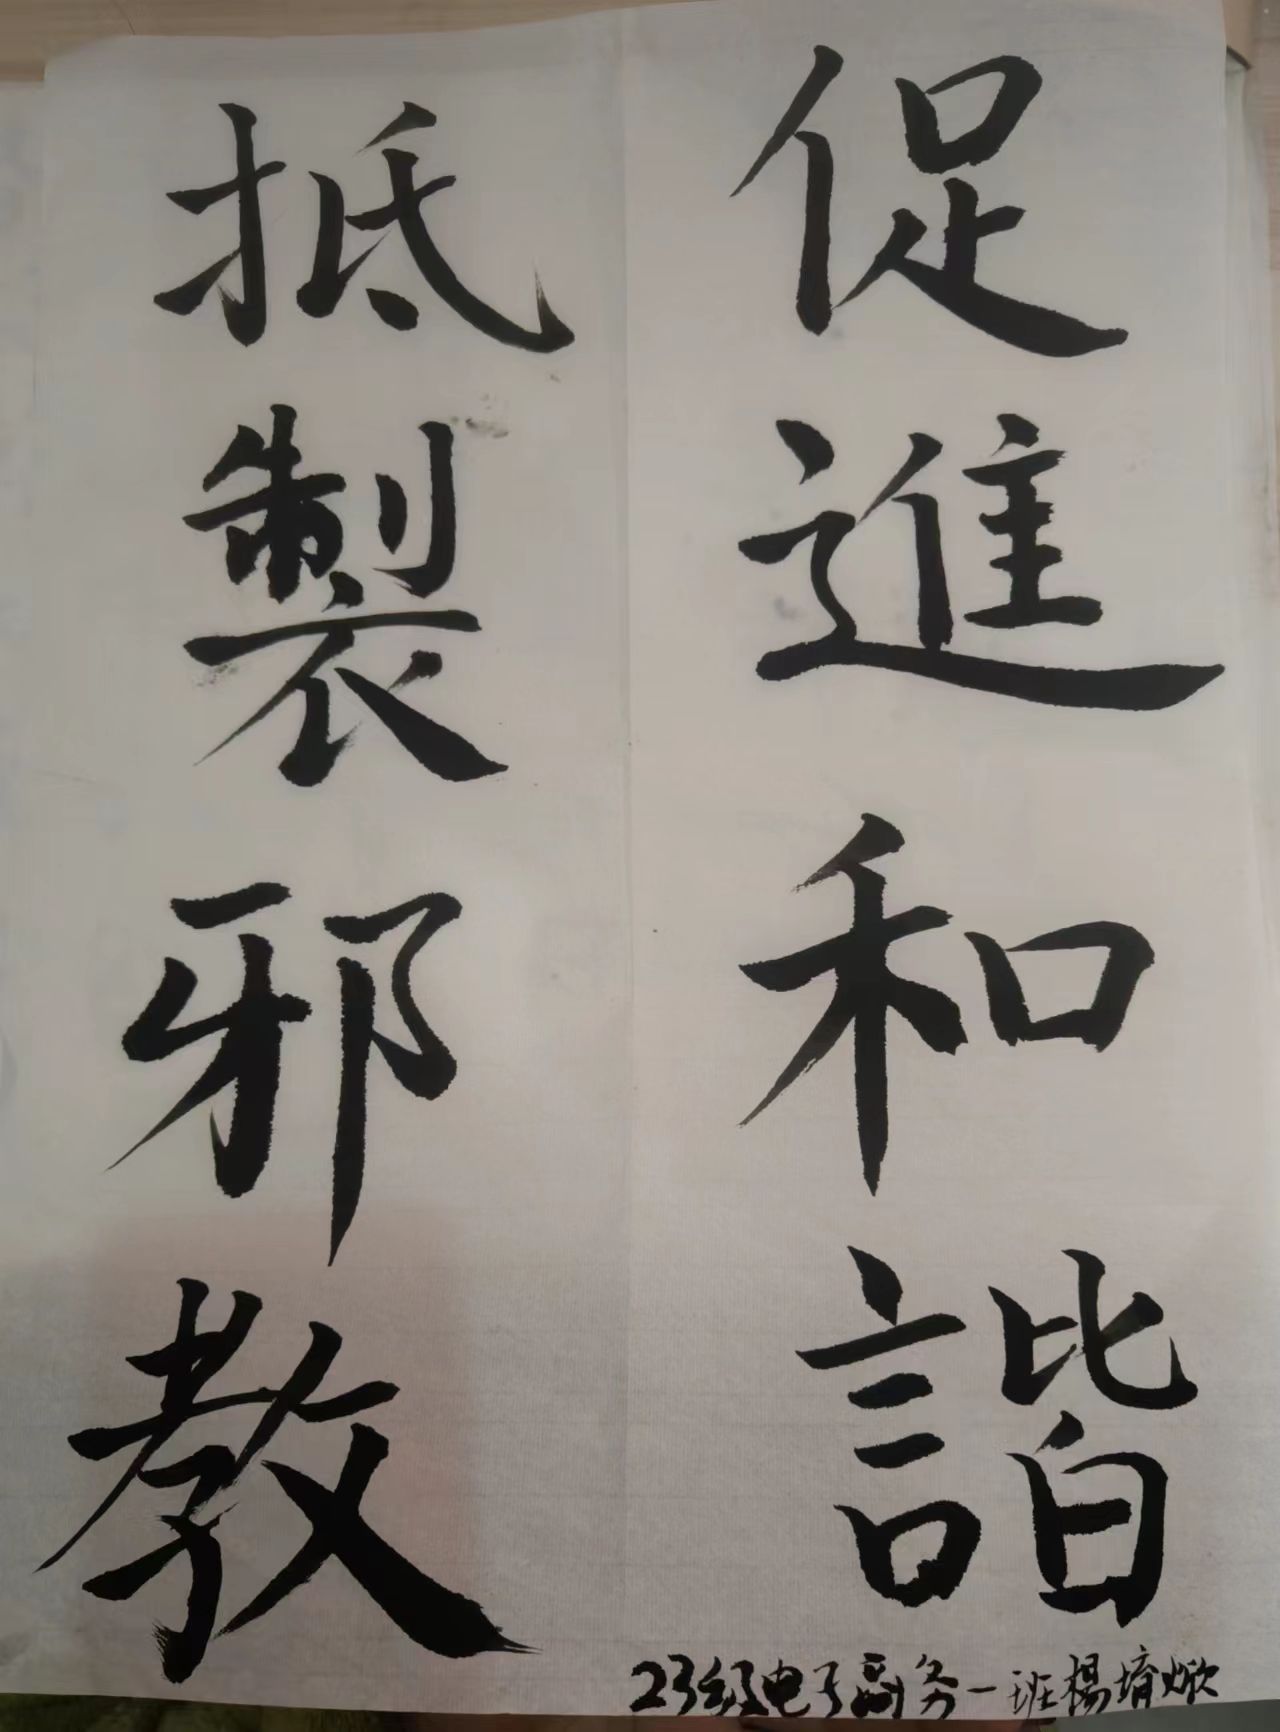 促進和諧
抵製邪教
23级电子商务一班楊堉焮